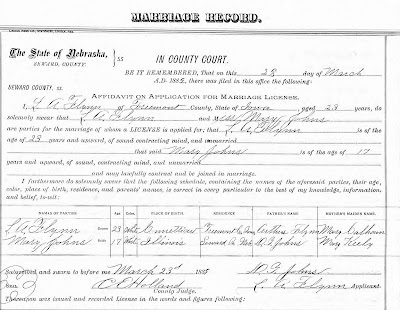 MARRIAGE RECORD.
The State of Nebraska, } ss
SEWARD COUNTY.
IN COUNTY COURT.
BE IT REMEMBERED, That on this 23 day of March
A.D. 1885, there was filed in this office the following:
SEWARD COUNTY. ss.
AFFIDAVIT ON APPLICATION FOR MARRIAGE LICENSE.
I, L A Flynn of Freemont County, State of Iowa aged 23 years, do
solemnly swear that L A Flynn and Miss Mary Johns
are parties for the marriage of whom a LICENSE is applied for; that L A Flynn is of the
age of 23 years and upward, of sound mind, contracting mind, and unmarried
that said Mary Johns is of the age of 17
years and upward, of sound, contracting mind, and unmarried
and may lawfully contract and be joined in marriage.
I furthermore do solemnly swear that the following schedule, containing the names of the aforesaid parties, their age,
color, place of birth, residence, and parents' names, is correct in every particular to the best of my knowledge, information,
and belief, to-wit:
NAMES OF PARTIES Age Color PLACE OF BIRTH. RESIDENCE FATHER'S NAME MOTHER'S MAIDEN NAME.
L A Flynn Groom 23 White Connetticut Freemont Co Iowa Flynn Mary Calhoun
Mary Johns Bride 17 White Illinois Seward Co Neb D. F. Johns Mary Neely
Subscribed and sworn to before me March 23d 1885 D. F. Johns
C E Holland L A Flynn Applicant.
County Judge.
Thereupon was issued and recorded License in the words and figures following: